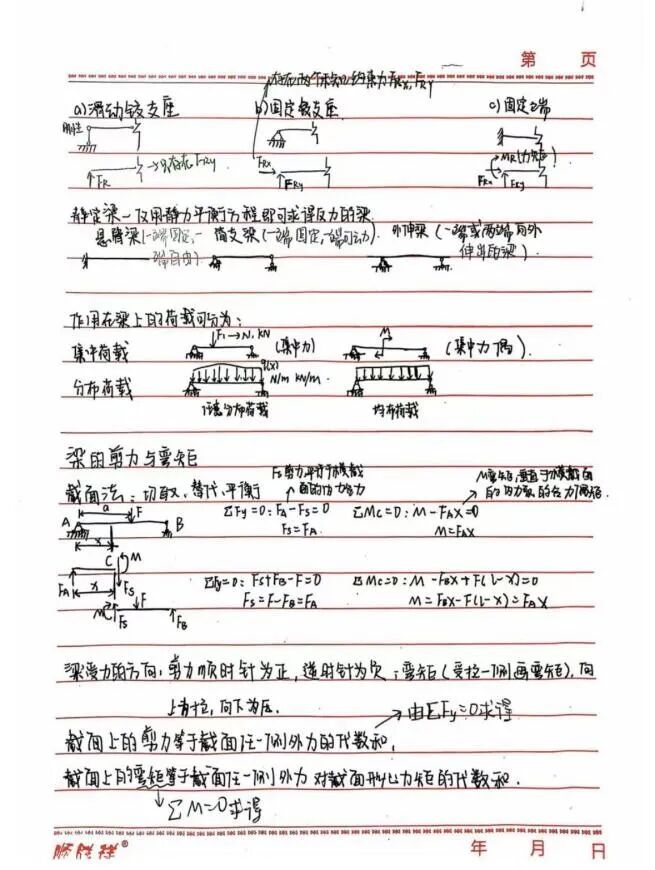 第 页
存在两个未知约束力FRx, FRy
a)滑动铰支座 b)固定铰支座 c)固定端
刚性
FR →只存在FRy FRx FRy FRx MR(力矩) FRy
静定梁—仅用静力平衡方程即可求得反力的梁
悬臂梁(一端固定,一端自由). 简支梁(一端固定,一端可动). 外伸梁(一端或两端向外伸出的梁)
作用在梁上的荷载可分为:
集中荷载 F1→N, kN (集中力) M (集中力偶).
分布荷载 q(x) N/m kN/m
任意分布荷载 均布荷载
梁的剪力与弯矩
Fs剪力,平行于横截面的内力合力
M弯矩,垂直于横截面的内力系的合力偶矩
截面法: 切取、替代、平衡
ΣFy=0: FA-FS=0 ΣMC=0: M-FAX=0
FS=FA M=FAX
a F A B x
C M FA x FS
ΣFy=0: FS+FB-F=0 ΣMC=0: M-FBX+F(l-X)=0
FS=F-FB=FA M=FBX-F(l-X)=FAX
M FS F FB
梁受力的方向: 剪力顺时针为正, 逆时针为负; 弯矩(受拉一侧画弯矩), 向
上为拉, 向下为压.
→由ΣFy=0求得
截面上的剪力等于截面任一侧外力的代数和,
截面上的弯矩等于截面任一侧外力对截面形心力矩的代数和.
ΣM=0求得
顺胜祥® 年 月 日